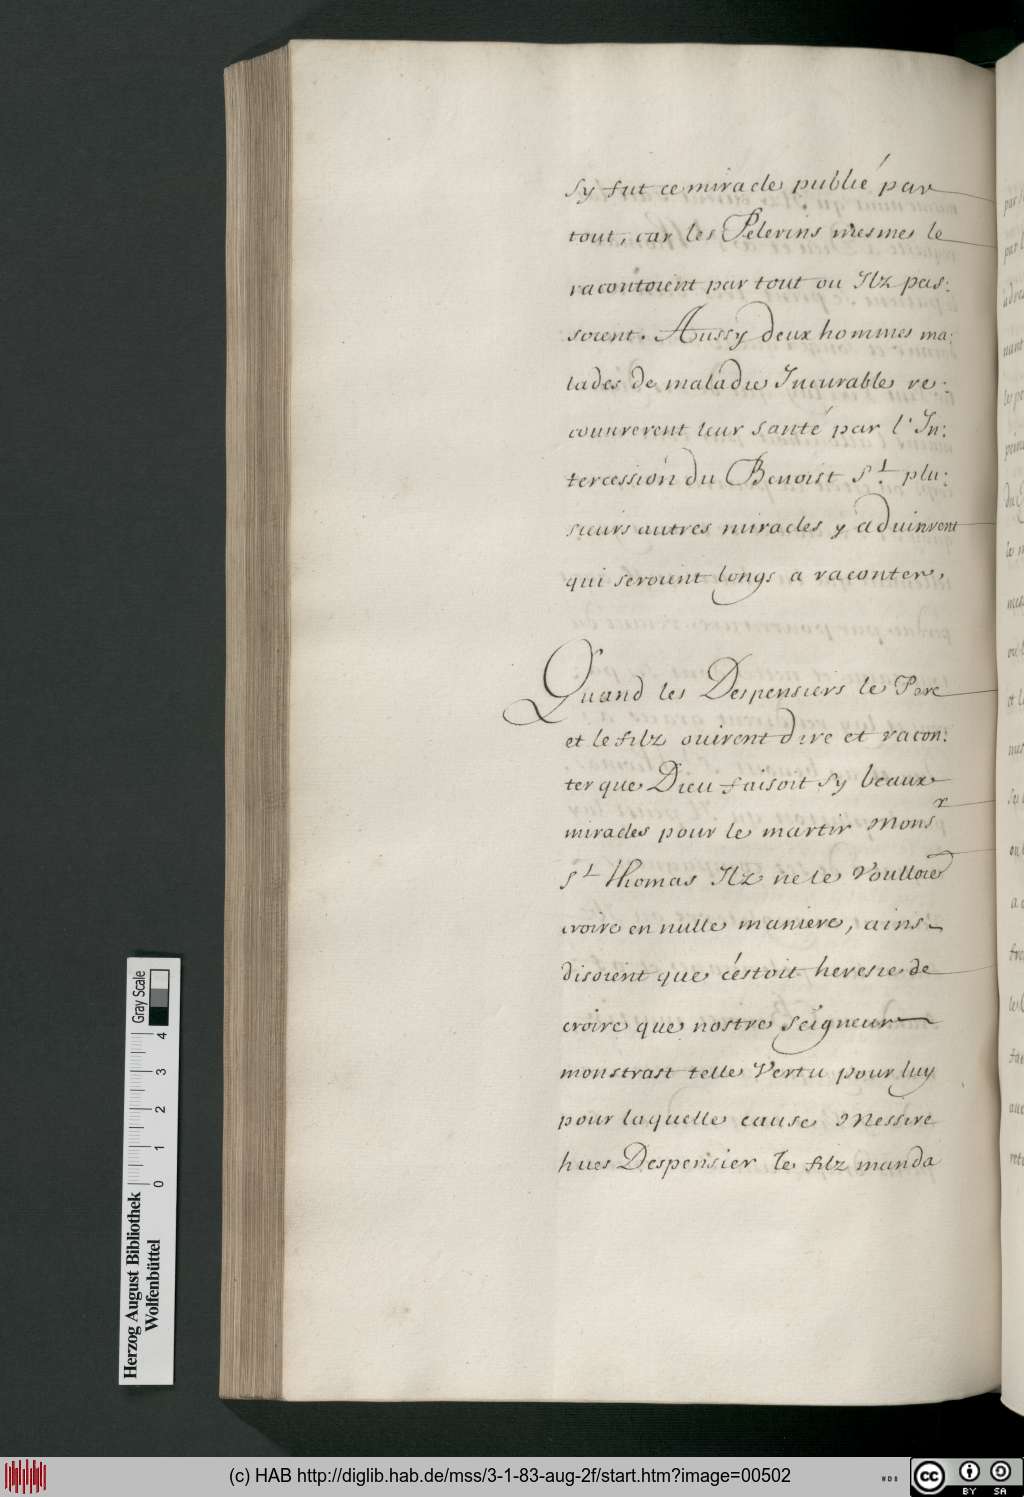 sy fut ce miracle publié par
tout, car les Pelerins mesmes le
racontoient par tout ou Ilz pas:
soient. Aussy deux hommes ma:
lades de maladie Incurable re:
couurerent leur santé par l'In:
tercession du Benoist St. plu:
sieurs autres miracles y aduinrent
qui seroient longs a raconter,
Quand les Despensiers le Pere
et le filz ouirent dire et racon:
ter que Dieu faisoit sy beaux
miracles pour le martir Monsr
St Thomas Ilz ne le Voulloiēt
croire en nulle maniere, ains
disoient que c'éstoit heresie de
croire que nostre Seigneur
monstrast telle Vertu pour luy
pour laquelle cause Messire
hues Despensier le filz manda
Gray Scale
0 1 2 3 4
Herzog August Bibliothek
Wolfenbüttel
(c) HAB http://diglib.hab.de/mss/3-1-83-aug-2f/start.htm?image=00502
WDB
cc BY SA